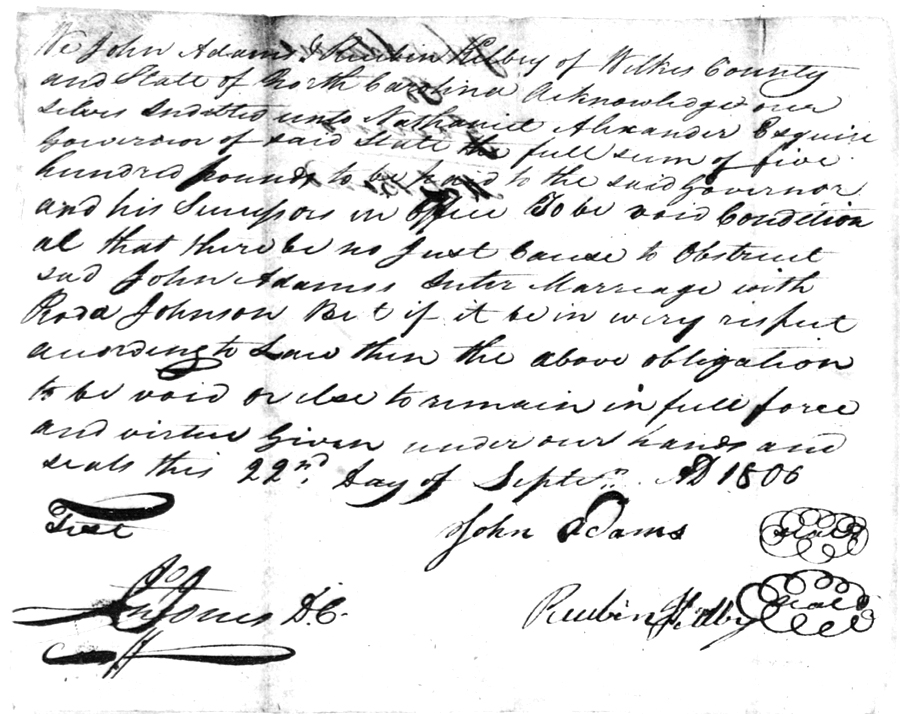 We John Adams & Reubin Kilbey of Wilkes County
and State of North Carolina Acknowledge our
selves indebted unto Nathaniel Alexander Esquire
Governor of said State the full sum of five
hundred pounds to be paid to the said Governor
and his Successors in office To be void Condition
al that there be no Just Cause to Obstruct
sad John Adamss Inter Marreage with
Roda Johnson But if it be in evry respect
acuording to Law then the above obligation
to be void or else to remain in full force
and virtue Given under our hands and
seals this 22nd Day of Septr. AD 1806
Test
John Adams seal
Jones D.C.
Reubin seal